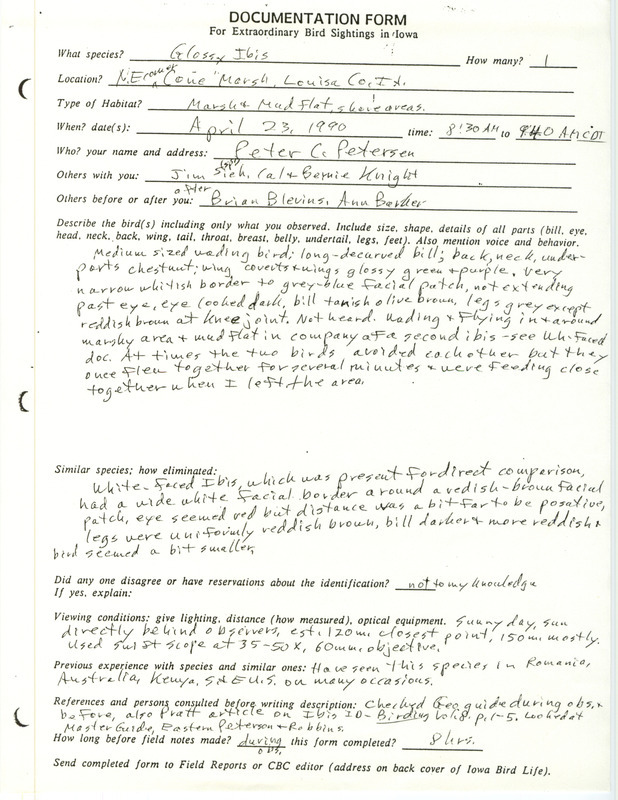 DOCUMENTATION FORM
For Extraordinary Bird Sightings in Iowa
What species? Glossy Ibis How many? 1
Location? N.E. corner "Cone" Marsh, Louisa Co., IA.
Type of Habitat? Marsh & Mud Flat, shore areas.
When? date(s): April 23, 1990 time: 8:30 AM to 9:40 AM CDT
Who? your name and address: Peter C. Petersen
Others with you: Jim Sieh, (sp?) Cal & Bernie Knight
Others before or after you: after Brian Blevins, Ann Barker
Describe the bird(s) including only what you observed. Include size, shape, details of all parts (bill, eye,
head, neck, back, wing, tail, throat, breast, belly, undertail, legs, feet). Also mention voice and behavior.
Medium sized wading bird; long-decurved bill; back, neck, under-
parts chestnut; wing coverts & wings glossy green & purple. Very
narrow whitish border to grey-blue facial patch, not extending
past eye, eye looked dark, bill tanish olive brown, legs grey except
reddish brown at knee joint. Not heard. Wading & flying in & around
marshy area & mud flat in company of a second ibis - see Wh. faced
doc. At times the two birds avoided each other but they
once flew together for several minutes & were feeding close
together when I left the area.
Similar species; how eliminated:
White-faced Ibis, which was present for direct comparison,
had a wide white facial border around a redish-brown facial
patch, eye seemed red but distance was a bit far to be posative,
legs were uniformly reddish brown, bill darker & more reddish &
bird seemed a bit smaller.
Did any one disagree or have reservations about the identification? not to my knowledge
If yes, explain:
Viewing conditions: give lighting, distance (how measured), optical equipment. Sunny day, sun
directly behind observers, est. 120m. closest point, 150m. mostly.
Used Swift scope at 35-50X, 60mm. objective.
Previous experience with species and similar ones: Have seen this species in Romania,
Australia, Kenya, S. & E. U.S. on many occasions.
References and persons consulted before writing description: Checked Geo guide during obs. &
before, also Pratt article on Ibis ID - Birding p. 1-5. Looked at
Master Guide, Eastern Peterson & Robbins.
How long before field notes made? during obs. this form completed? 8 hrs.
Send completed form to Field Reports or CBC editor (address on back cover of Iowa Bird Life).